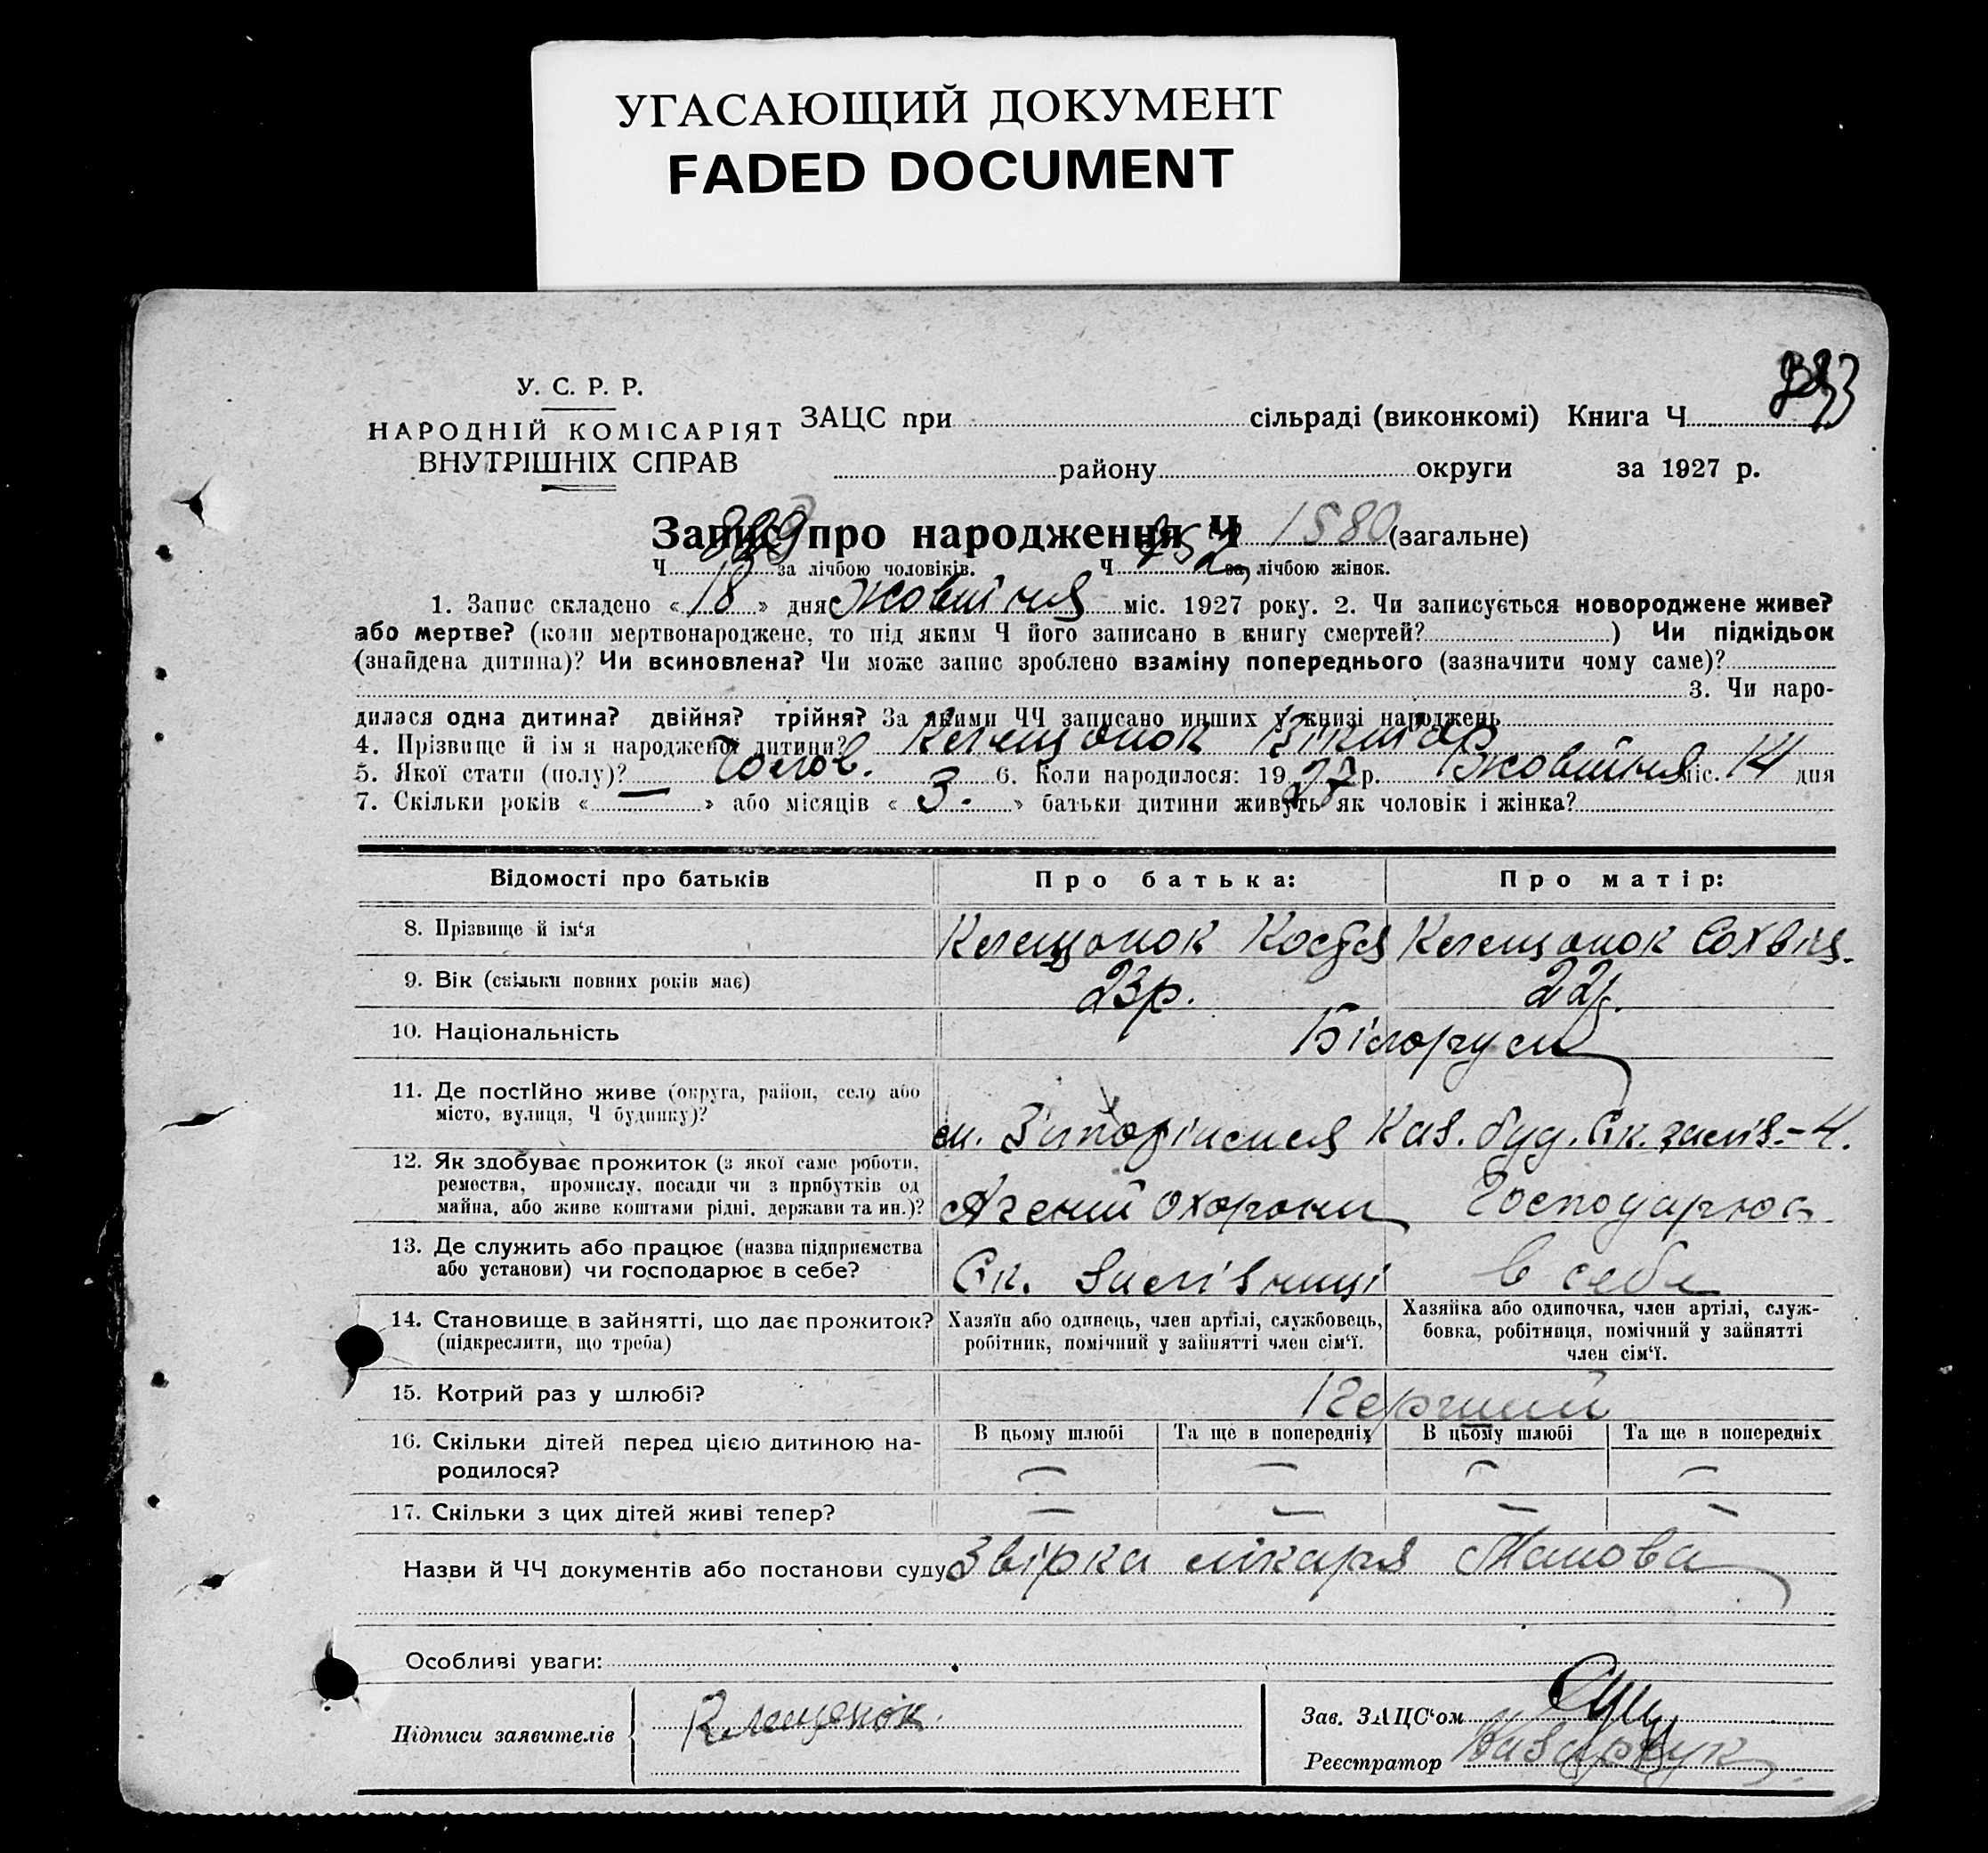 УГАСАЮЩИЙ ДОКУМЕНТ
FADED DOCUMENT
У. С. Р. Р.
НАРОДНІЙ КОМІСАРІЯТ
ВНУТРІШНІХ СПРАВ
ЗАЦС при сільраді (виконкомі) Книга Ч
району округи за 1927 р.
Запис про народження Ч 1580 (загальне)
Ч за лічбою чоловіків. Ч 752 за лічбою жінок.
1. Запис складено « 18 » дня Жовтня міс. 1927 року. 2. Чи записується новороджене живе?
або мертве? (коли мертвонароджене, то під яким Ч його записано в книгу смертей? ) Чи підкідьок
(знайдена дитина)? Чи всиновлена? Чи може запис зроблено взаміну попереднього (зазначити чому саме)?
3. Чи наро-
дилася одна дитина? двійня? трійня? За якими ЧЧ записано инших у книзі народжень
4. Прізвище й ім'я народженої дитини? Клещонок Віктор
5. Якої стати (полу)? Чолов. 6. Коли народилося: 1927 р. Жовтня міс. 14 дня
7. Скільки років « — » або місяців « 3. » батьки дитини живуть як чоловік і жінка?
Відомості про батьків Про батька: Про матір:
8. Прізвище й ім'я Клещонок Костя Клещонок Сохвія.
9. Вік (скільки повних років має) 23р. 22р.
10. Національність Білоруси
11. Де постійно живе (округа, район, село або
місто, вулиця, Ч будинку)?
Каз. буд. Ск. заліз. - 4.
12. Як здобуває прожиток (з якої саме роботи,
ремества, промислу, посади чи з прибутків од
майна, або живе коштами рідні, держави та ин.)?
Агент Охорони Господарює
13. Де служить або працює (назва підприємства
або установи) чи господарює в себе?
Ск. Залізниці в себе
14. Становище в зайнятті, що дає прожиток?
(підкреслити, що треба)
Хазяїн або одинець, член артілі, службовець,
робітник, помічний у зайнятті член сім'ї.
Хазяйка або одиночка, член артілі, служ-
бовка, робітниця, помічний у зайнятті
член сім'ї.
15. Котрий раз у шлюбі? Перший
16. Скільки дітей перед цією дитиною на-
родилося?
В цьому шлюбі Та ще в попередніх В цьому шлюбі Та ще в попередніх
— — — —
17. Скільки з цих дітей живі тепер? — — — —
Назви й ЧЧ документів або постанови суду Звірка лікаря
Особливі уваги:
Підписи заявителів Клещенок.
Зав. ЗАЦС'ом
Реєстратор